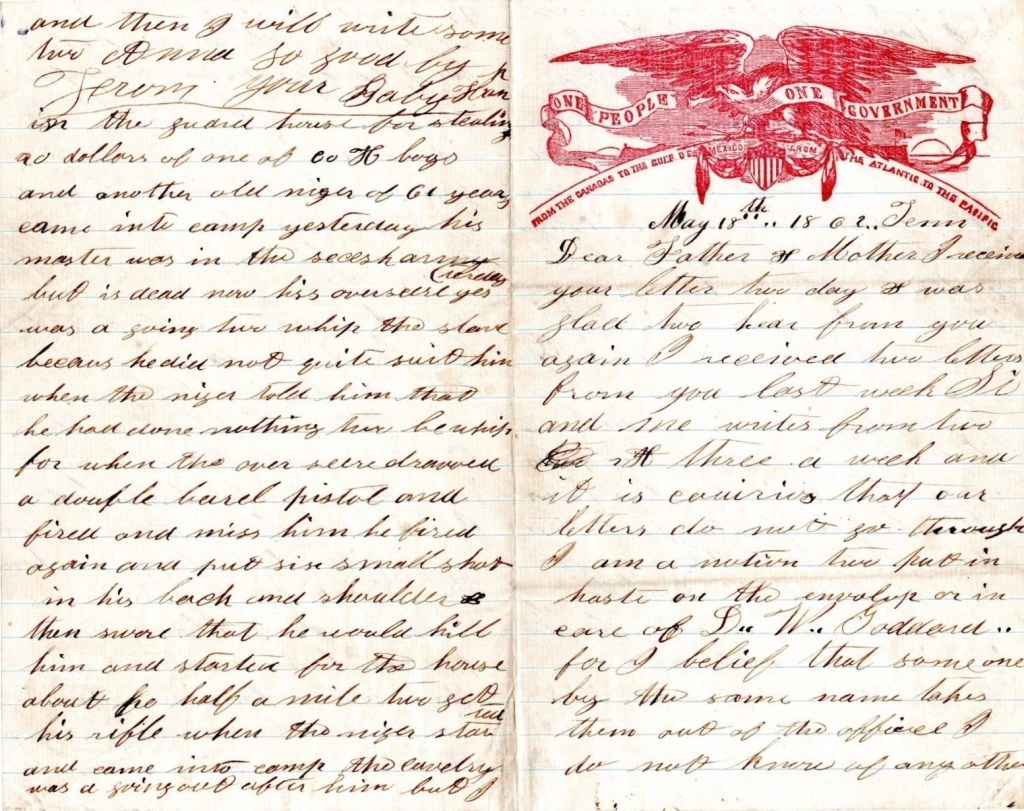 and then I will write some
two Anna so good by
From your Baby Fran
in the guard house for stealing
20 dollars of one of co H boys
and another old niger of 61 years
came into camp yesterday his
master was in the secesh army
but is dead now his overseere yes
(terday
was a going two whip the slave
becaus he did not quite suit him
when the niger told him that
he had done nothing two be whip
for when the over seere drawed
a double barel pistol and
fired and miss him he fired
again and put six small shot
in his back and shoulder
then swore that he would kill
him and started for the house
about half a mile two get
his rifle when the niger star
ted
and came into camp the cavelry
was a going out after him but I
ONE PEOPLE ONE GOVERNMENT
FROM THE CANADAS TO THE GULF OF MEXICO FROM THE ATLANTIC TO THE PACIFIC
May 18th .. 1862.. Tenn
Dear Father & Mother I receive
your letter two day & was
glad two hear from you
again I received two letters
from you last week Si
and me writes from two
three a week and
it is couirios that our
letters do not go through
I am a notion two put in
haste on the envelop or in
care of D.. W.. Goddard ..
for I belief that some one
by the same name takes
them out of the officee I
do not know of any other